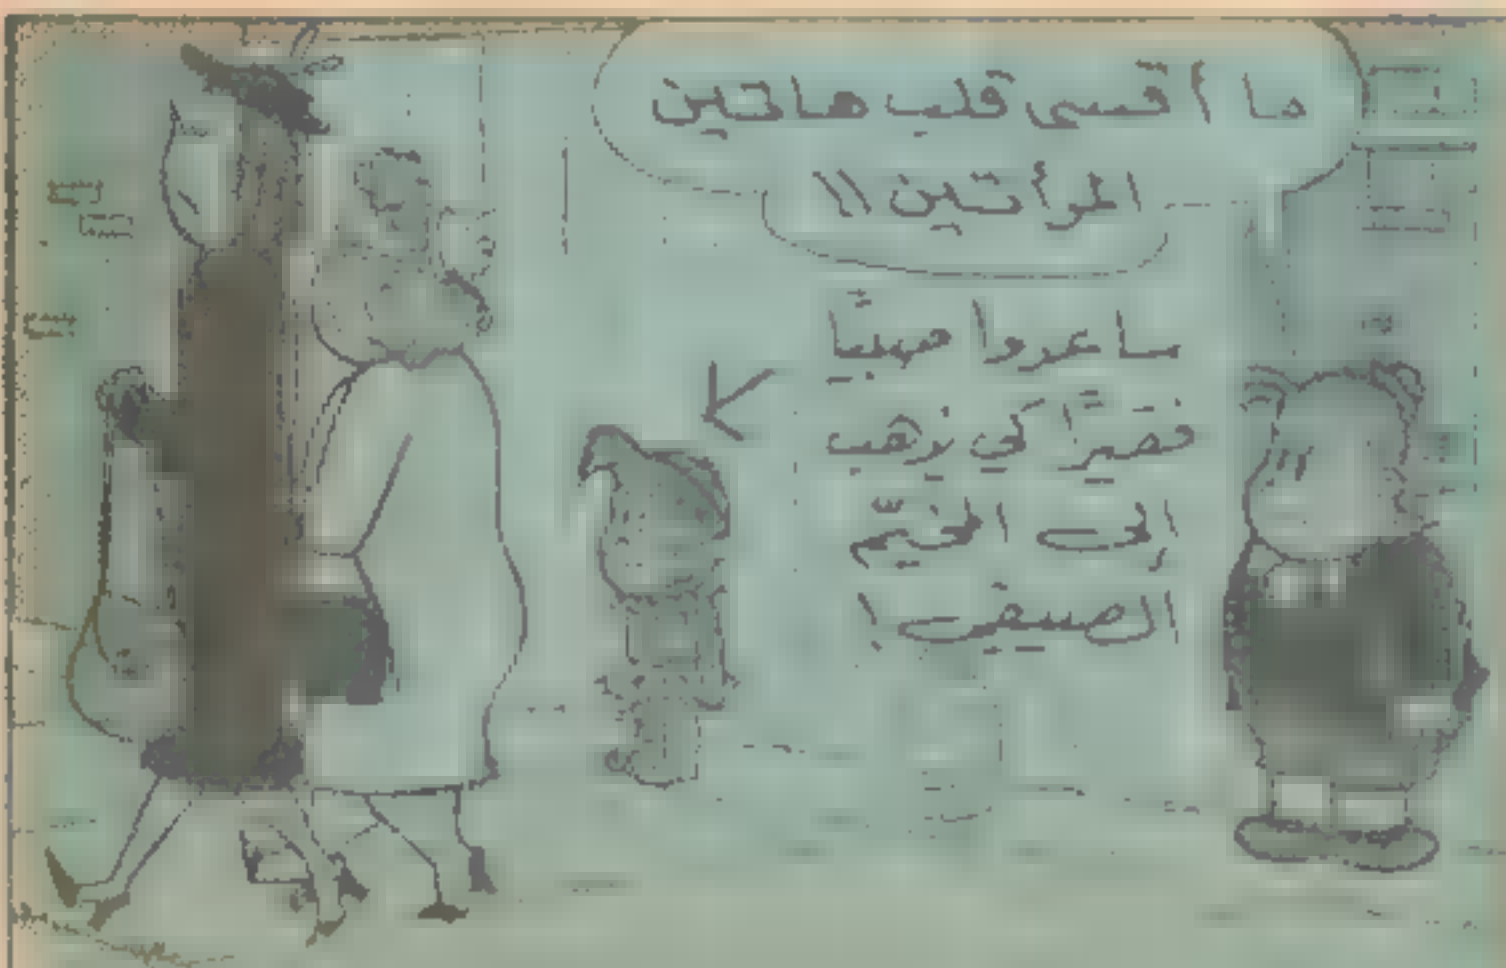 ما أقسى قلب هاتين
المرأتين !!
ساعدوا صبيّا
فقيرًا كي يذهب
إلى المخيّم
الصيفي !